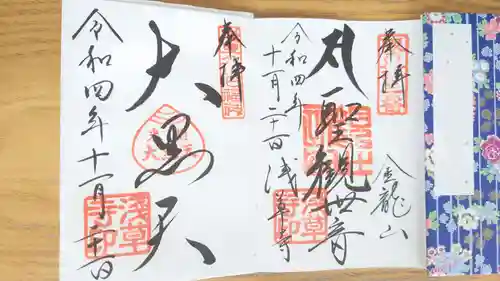 奉拝
金龍山
聖観世音
令和四年
十一月二十一日
浅草寺
奉拝
大黒天
令和四年十一月二十一日
浅草寺印